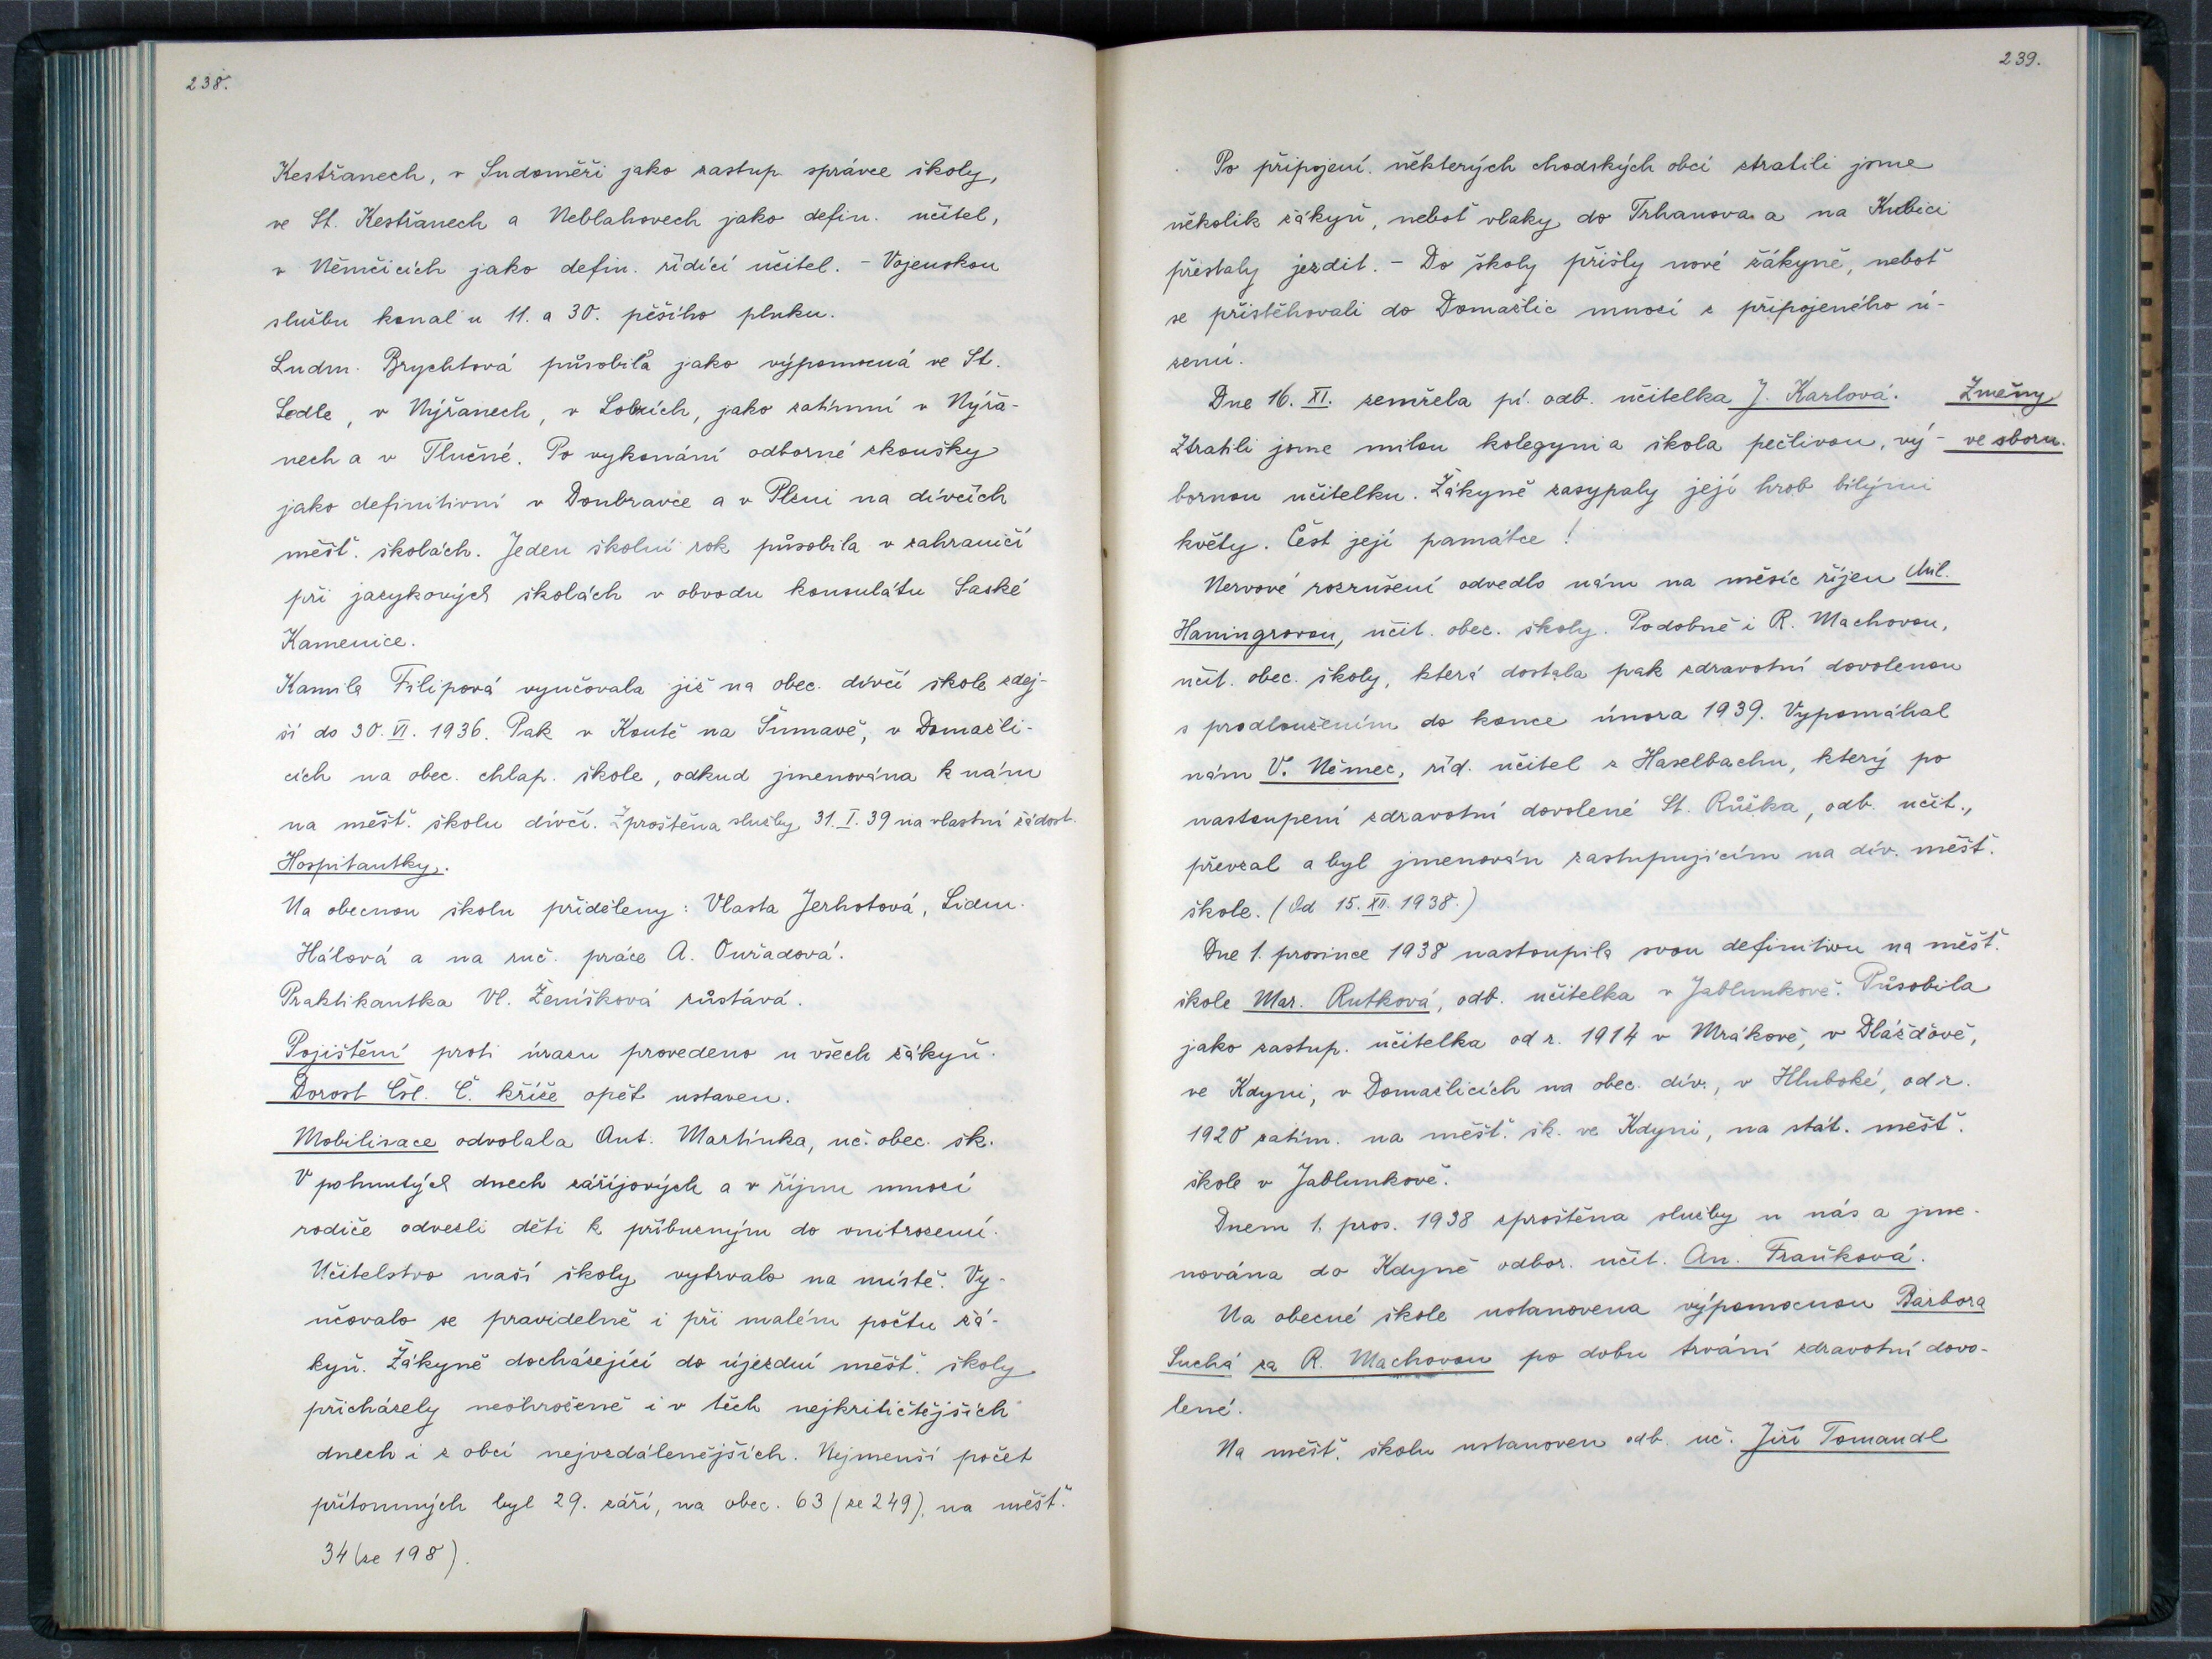 238.
Kestřanech, v Sudoměři jako zastup. správce školy,
ve St. Kestřanech a Neblahovech jako defin. učitel,
v Němčicích jako defin. řídící učitel. - Vojenskou
službu konal u 11. a 30. pěšího pluku.
Ludm. Brychtová působila jako výpomocná ve St.
Sedle, v Nýřanech, v Lobzích, jako zatímní v Nýřa-
nech a v Tlučné. Po vykonání odborné zkoušky
jako definitivní v Doubravce a v Plzni na dívčích
měšť. školách. Jeden školní rok působila v zahraničí
při jazykových školách v obvodu konsulátu Saské
Kamenice.
Kamila Filipová vyučovala již na obec. dívčí škole zdej-
ší do 30. VI. 1936. Pak v Koutě na Šumavě, v Domažli-
cích na obec. chlap. škole, odkud jmenována k nám
na měšť. školu dívčí. Zproštěna služby 31. I. 39 na vlastní žádost.
Hospitantky.
Na obecnou školu přiděleny: Vlasta Jerhotová, Lidm.
Hálová a na ruč. práce A. Ouřadová.
Praktikantka Vl. Ženíšková zůstává.
Pojištění proti úrazu provedeno u všech žákyň.
Dorost Čsl. Č. kříže opět ustaven.
Mobilisace odvolala Ant. Martínka, uč. obec. šk.
V pohnutých dnech zářijových a v říjnu mnozí
rodiče odvezli děti k příbuzným do vnitrozemí.
Učitelstvo naší školy vytrvalo na místě. Vy-
učovalo se pravidelně i při malém počtu žá-
kyň. Žákyně docházející do újezdní měšť. školy
přicházely neohroženě i v těch nejkritičtějších
dnech i z obcí nejvzdálenějších. Nejmenší počet
přítomných byl 29. září, na obec. 63 (ze 249), na měšť.
34 (ze 198).
239.
Po připojení některých chodských obcí ztratili jsme
několik žákyň, neboť vlaky do Trhanova a na Kubici
přestaly jezdit. - Do školy přišly nové žákyně, neboť
se přistěhovali do Domažlic mnozí z připojeného ú-
zemí.
Dne 16. XI. zemřela pí. odb. učitelka J. Karlová. Změny
Ztratili jsme milou kolegyni a škola pečlivou, vý- ve sboru.
bornou učitelku. Žákyně zasypaly její hrob bílými
květy. Čest její památce!
Nervové rozrušení odvedlo nám na měsíc říjen Mil.
Haningrovou, učit. obec. školy. Podobně i R. Machovou,
učit. obec. školy, která dostala pak zdravotní dovolenou
s prodloužením do konce února 1939. Vypomáhal
nám V. Němec, říd. učitel z Haselbachu, který po
nastoupení zdravotní dovolené St. Růžka, odb. učit.,
převzal a byl jmenován zastupujícím na dív. měšť.
škole. (Od 15. XII. 1938.)
Dne 1. prosince 1938 nastoupila svou definitivu na měšť.
škole Mar. Rutková, odb. učitelka v Jablunkově. Působila
jako zastup. učitelka od r. 1914 v Mrákově, v Dlážďově,
ve Kdyni, v Domažlicích na obec. dív., v Hluboké, od r.
1920 zatím. na měšť. šk. ve Kdyni, na stát. měšť.
škole v Jablunkově.
Dnem 1. pros. 1938 zproštěna služby u nás a jme-
nována do Kdyně odbor. učit. An. Fraňková.
Na obecné škole ustanovena výpomocnou Barbora
Suchá za R. Machovou po dobu trvání zdravotní dovo-
lené.
Na měšť. školu ustanoven odb. uč. Jiří Tomandl